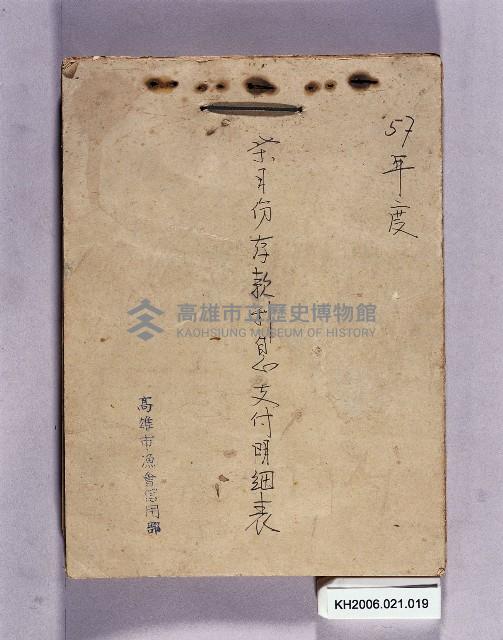 57年度
柒月份存款利息支付明細表
高雄市漁會信用部
高雄市立歷史博物館
KAOHSIUNG MUSEUM OF HISTORY
KH2006.021.019